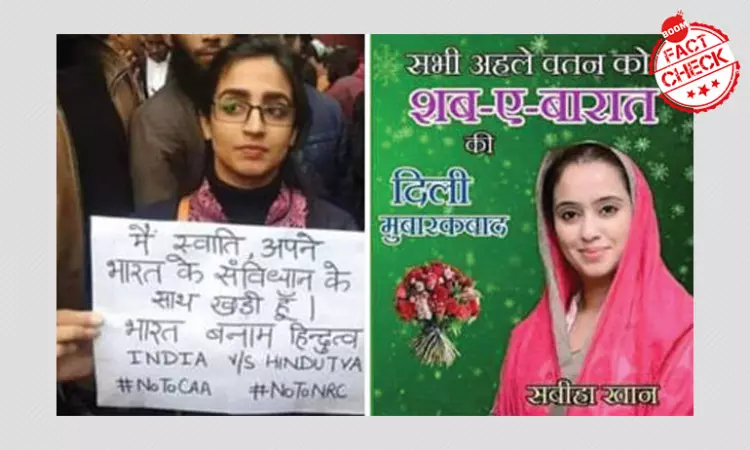 मैं स्वाति, अपने
भारत के संविधान के
साथ खड़ी हूँ।
भारत बनाम हिन्दुत्व
INDIA V/S HINDUTVA
#NOTOCAA #NOTONRC
सभी अहले वतन को
शब-ए-बारात
की
दिली
मुबारकबाद
सबीहा खान
BOOM
FACT
CHECK